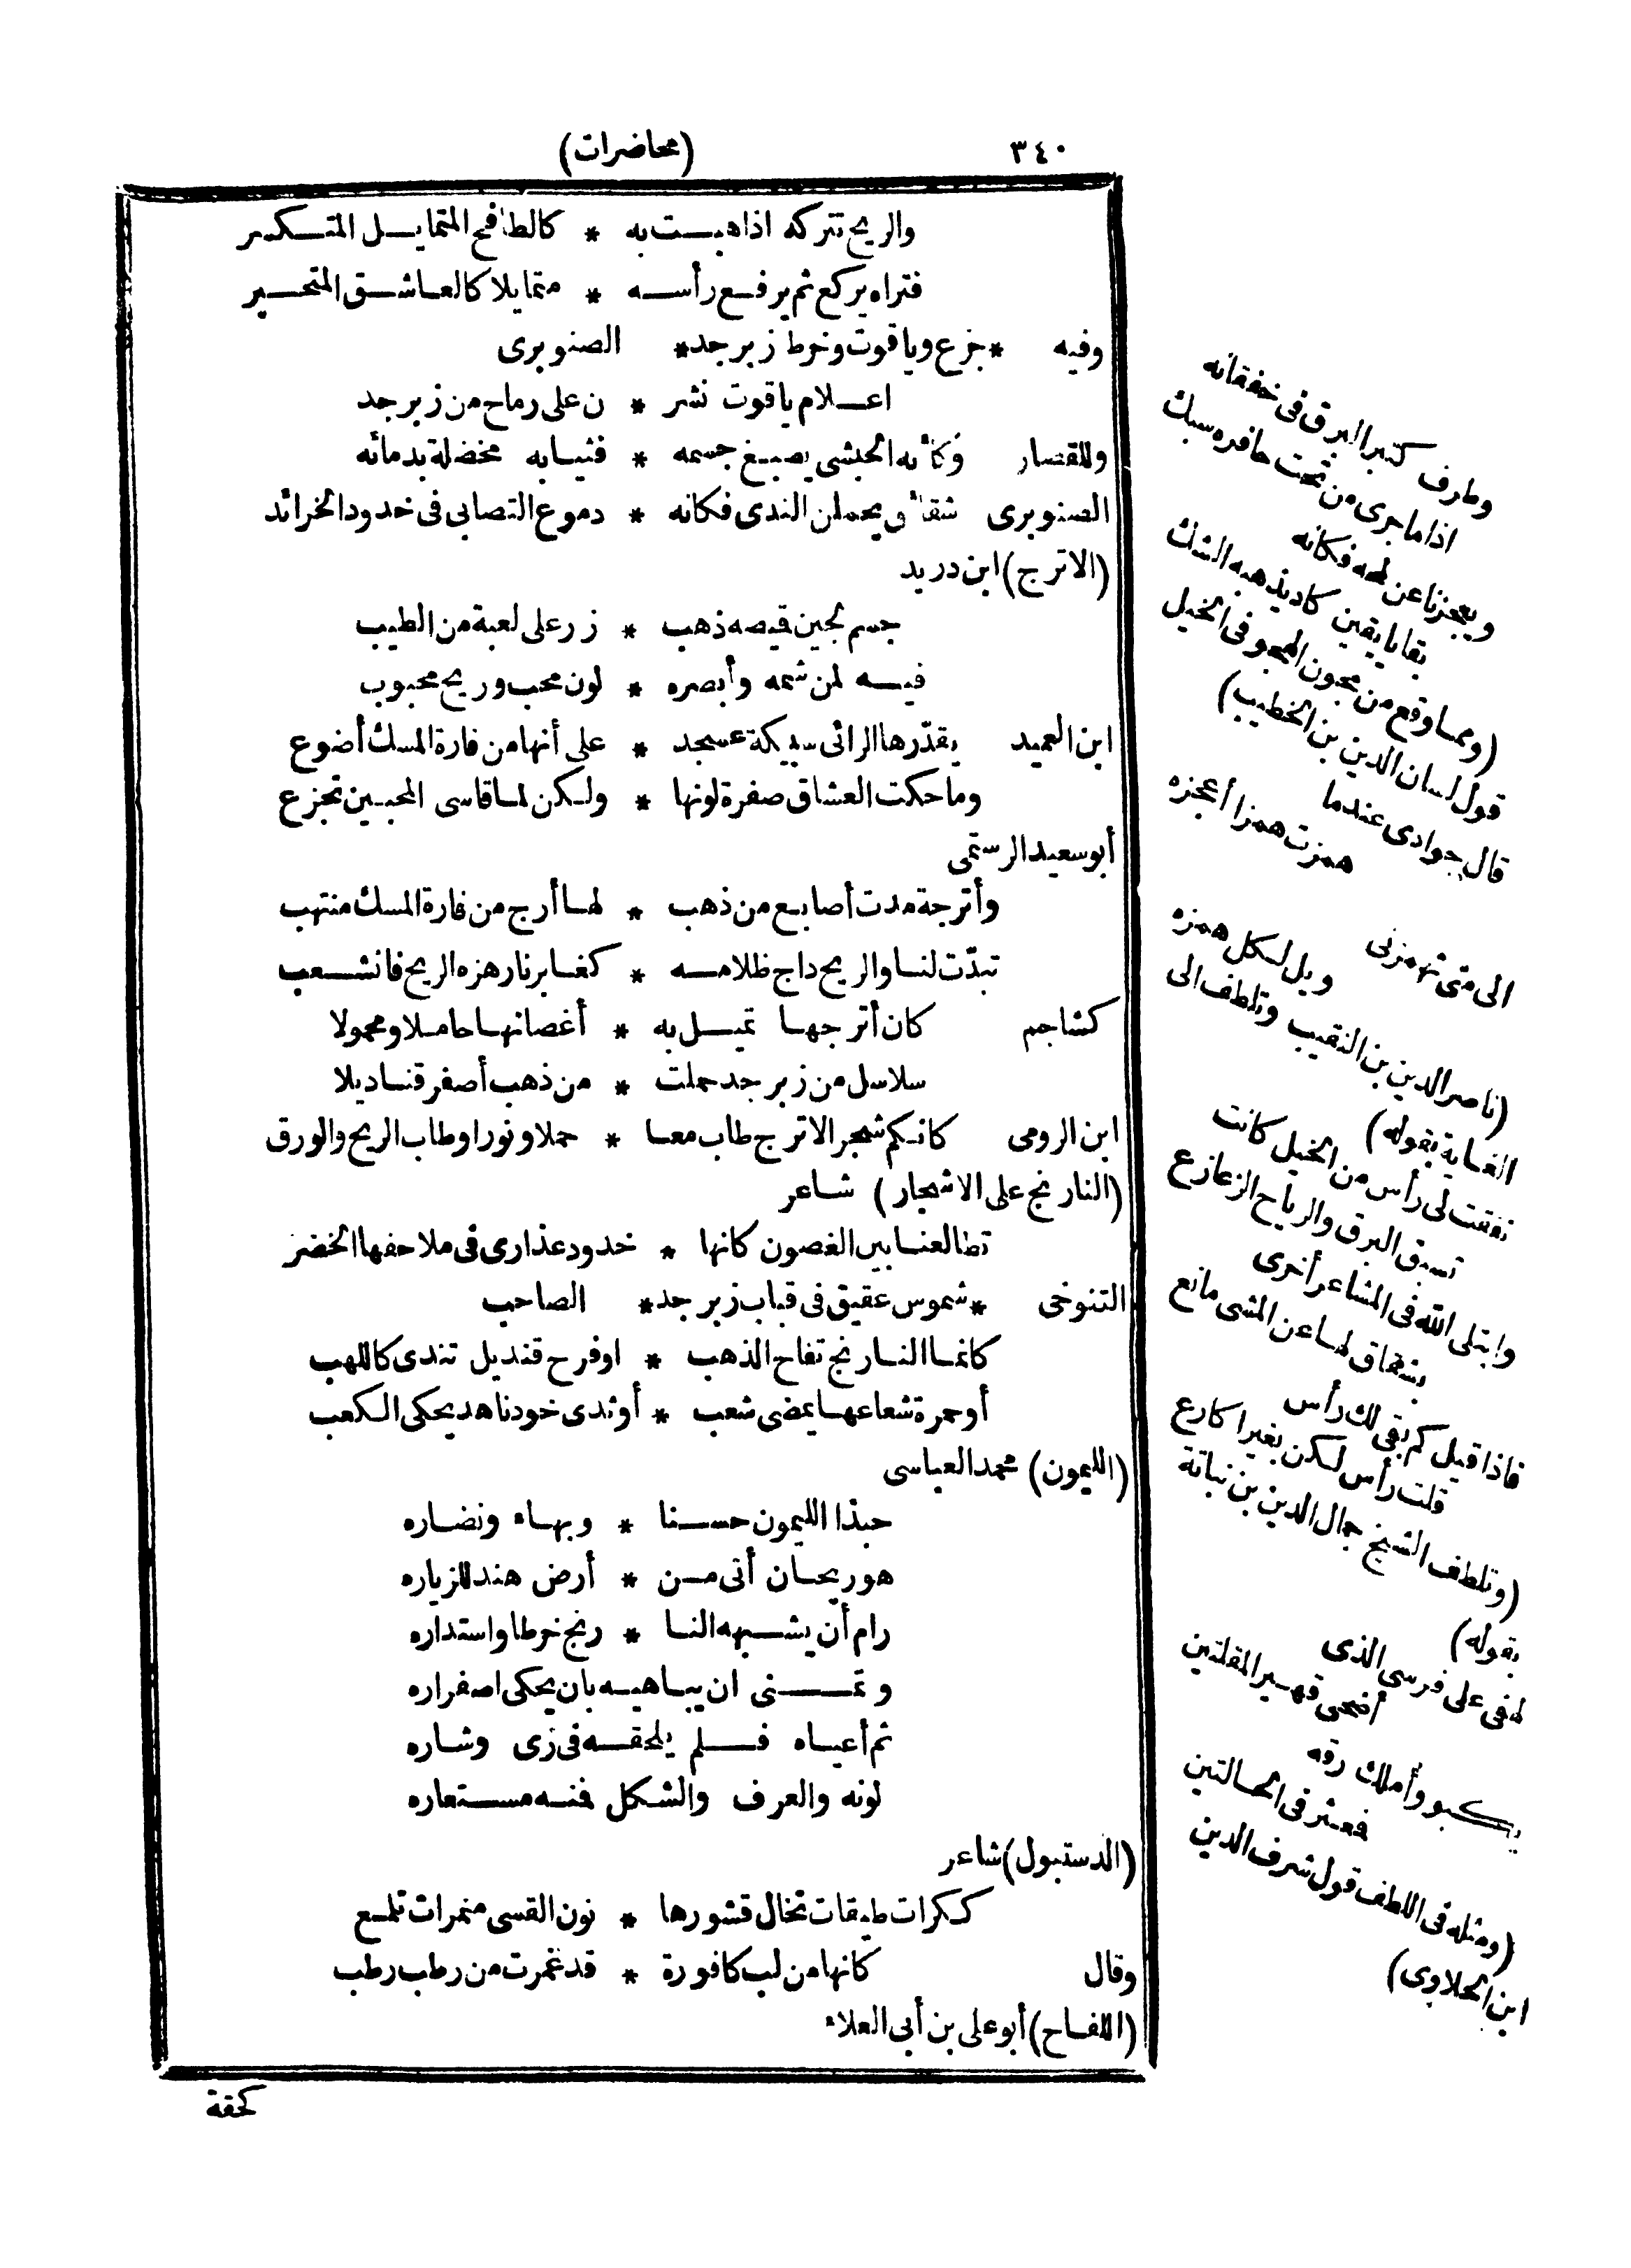 ٣٤٠
(محاضرات)
والريح تتركه اذا هبت به * كالطافح المتمايل المتسكر
فتراه يركع ثم يرفع رأسه * متمايلا كالعاشق المتحير
وفيه * جزع وياقوت وخرط زبرجد * الصنوبرى
اعلام ياقوت نشر * ن على رماح من زبرجد
وللقصار وكأنه الحبشى يصبغ جسمه * فثيابه مخضلة بدمائه
الصنوبرى شقائق يحملن الندى فكانه * دموع التصابى فى خدود الخرائد
(الاترج) ابن دريد
جسم لجين قيصه ذهب * زر على لعبة من الطيب
فيه لمن شمه وأبصره * لون محب وريح محبوب
ابن العميد يقدّرها الرائى سبيكة عسجد * على أنها من فارة المسك أضوع
وما حكت العشاق صفرة لونها * ولكن لما قاسى المحبين تجزع
أبو سعيد الرستمى
وأترجة مدت أصابع من ذهب * لها أرج من فارة المسك منتهب
تبدّت لنا والريح داج ظلامه * كغابر نار هزه الريح فانشعب
كشاجم كان أترجها تميل به * أغصانها حاملا ومحمولا
سلاسل من زبرجد حملت * من ذهب أصفر قناديلا
ابن الرومى كانكم شجر الاترج طاب معا * حملا ونورا وطاب الريح والورق
(النارنج على الاشجار) شاعر
تطالعنا بين الغصون كانها * خدود عذارى فى ملاحفها الخضر
التنوخى * شموس عقيق فى قباب زبرجد * الصاحب
كانما النارنج تفاح الذهب * او فرح قنديل تندى كاللهب
أو جمرة شعاعها يمضى شعب * أو ثدى خود ناهد يحكى الكعب
(الليمون) محمد العباسى
حبذا الليمون حسنا * وبهاء ونضاره
هو ريحان أتى من * أرض هند للزياره
رام أن يشبهه النا * رنج خرطا واستداره
وتمنى ان يباهيه بان يحكى اصفراره
ثم أعياه فلم يلحقه فى زى وشاره
لونه والعرف والشكل فمنه مستعاره
(الدستبول) شاعر
ككرات طبقات تخال قشورها * نون القسى منمرات تلمع
وقال كانها من لب كافورة * قد غمرت من رطب رطب
(اللفاح) أبو على بن أبى العلاء
كحقة
وطارف كتبر البرق فى خفقانه
اذا ما جرى من تحت حافره سبك
ويعجزنا عن لمحه فكانه
بقايا يقين كاد يذهبه الشك
(ومما وقع من مجون الهجو فى الخيل
قول لسان الدين بن الخطيب)
قال جوادى عندما
همزت همزا أعجزه
الى متى تهمزنى
ويل لكل همزه
(ناصر الدين بن النقيب وتلطف الى
الغاية بقوله)
نفقت لى رأس من الخيل كانت
تسبق البرق والرياح الزعازع
وابتلى الله فى المشاعر أخرى
بشقاق لها عن المشى مانع
فاذا قيل كم بقى لك رأس
قلت رأس لكن بغير اكارع
(وتلطف الشيخ جمال الدين بن نباتة
بقوله)
لهفى على فرسى الذى
أضحى قهير المقلتين
يكبو وأملك رقه
فعثر فى الحالتين
(ومثله فى اللطف قول شرف الدين
ابن الحلاوى)